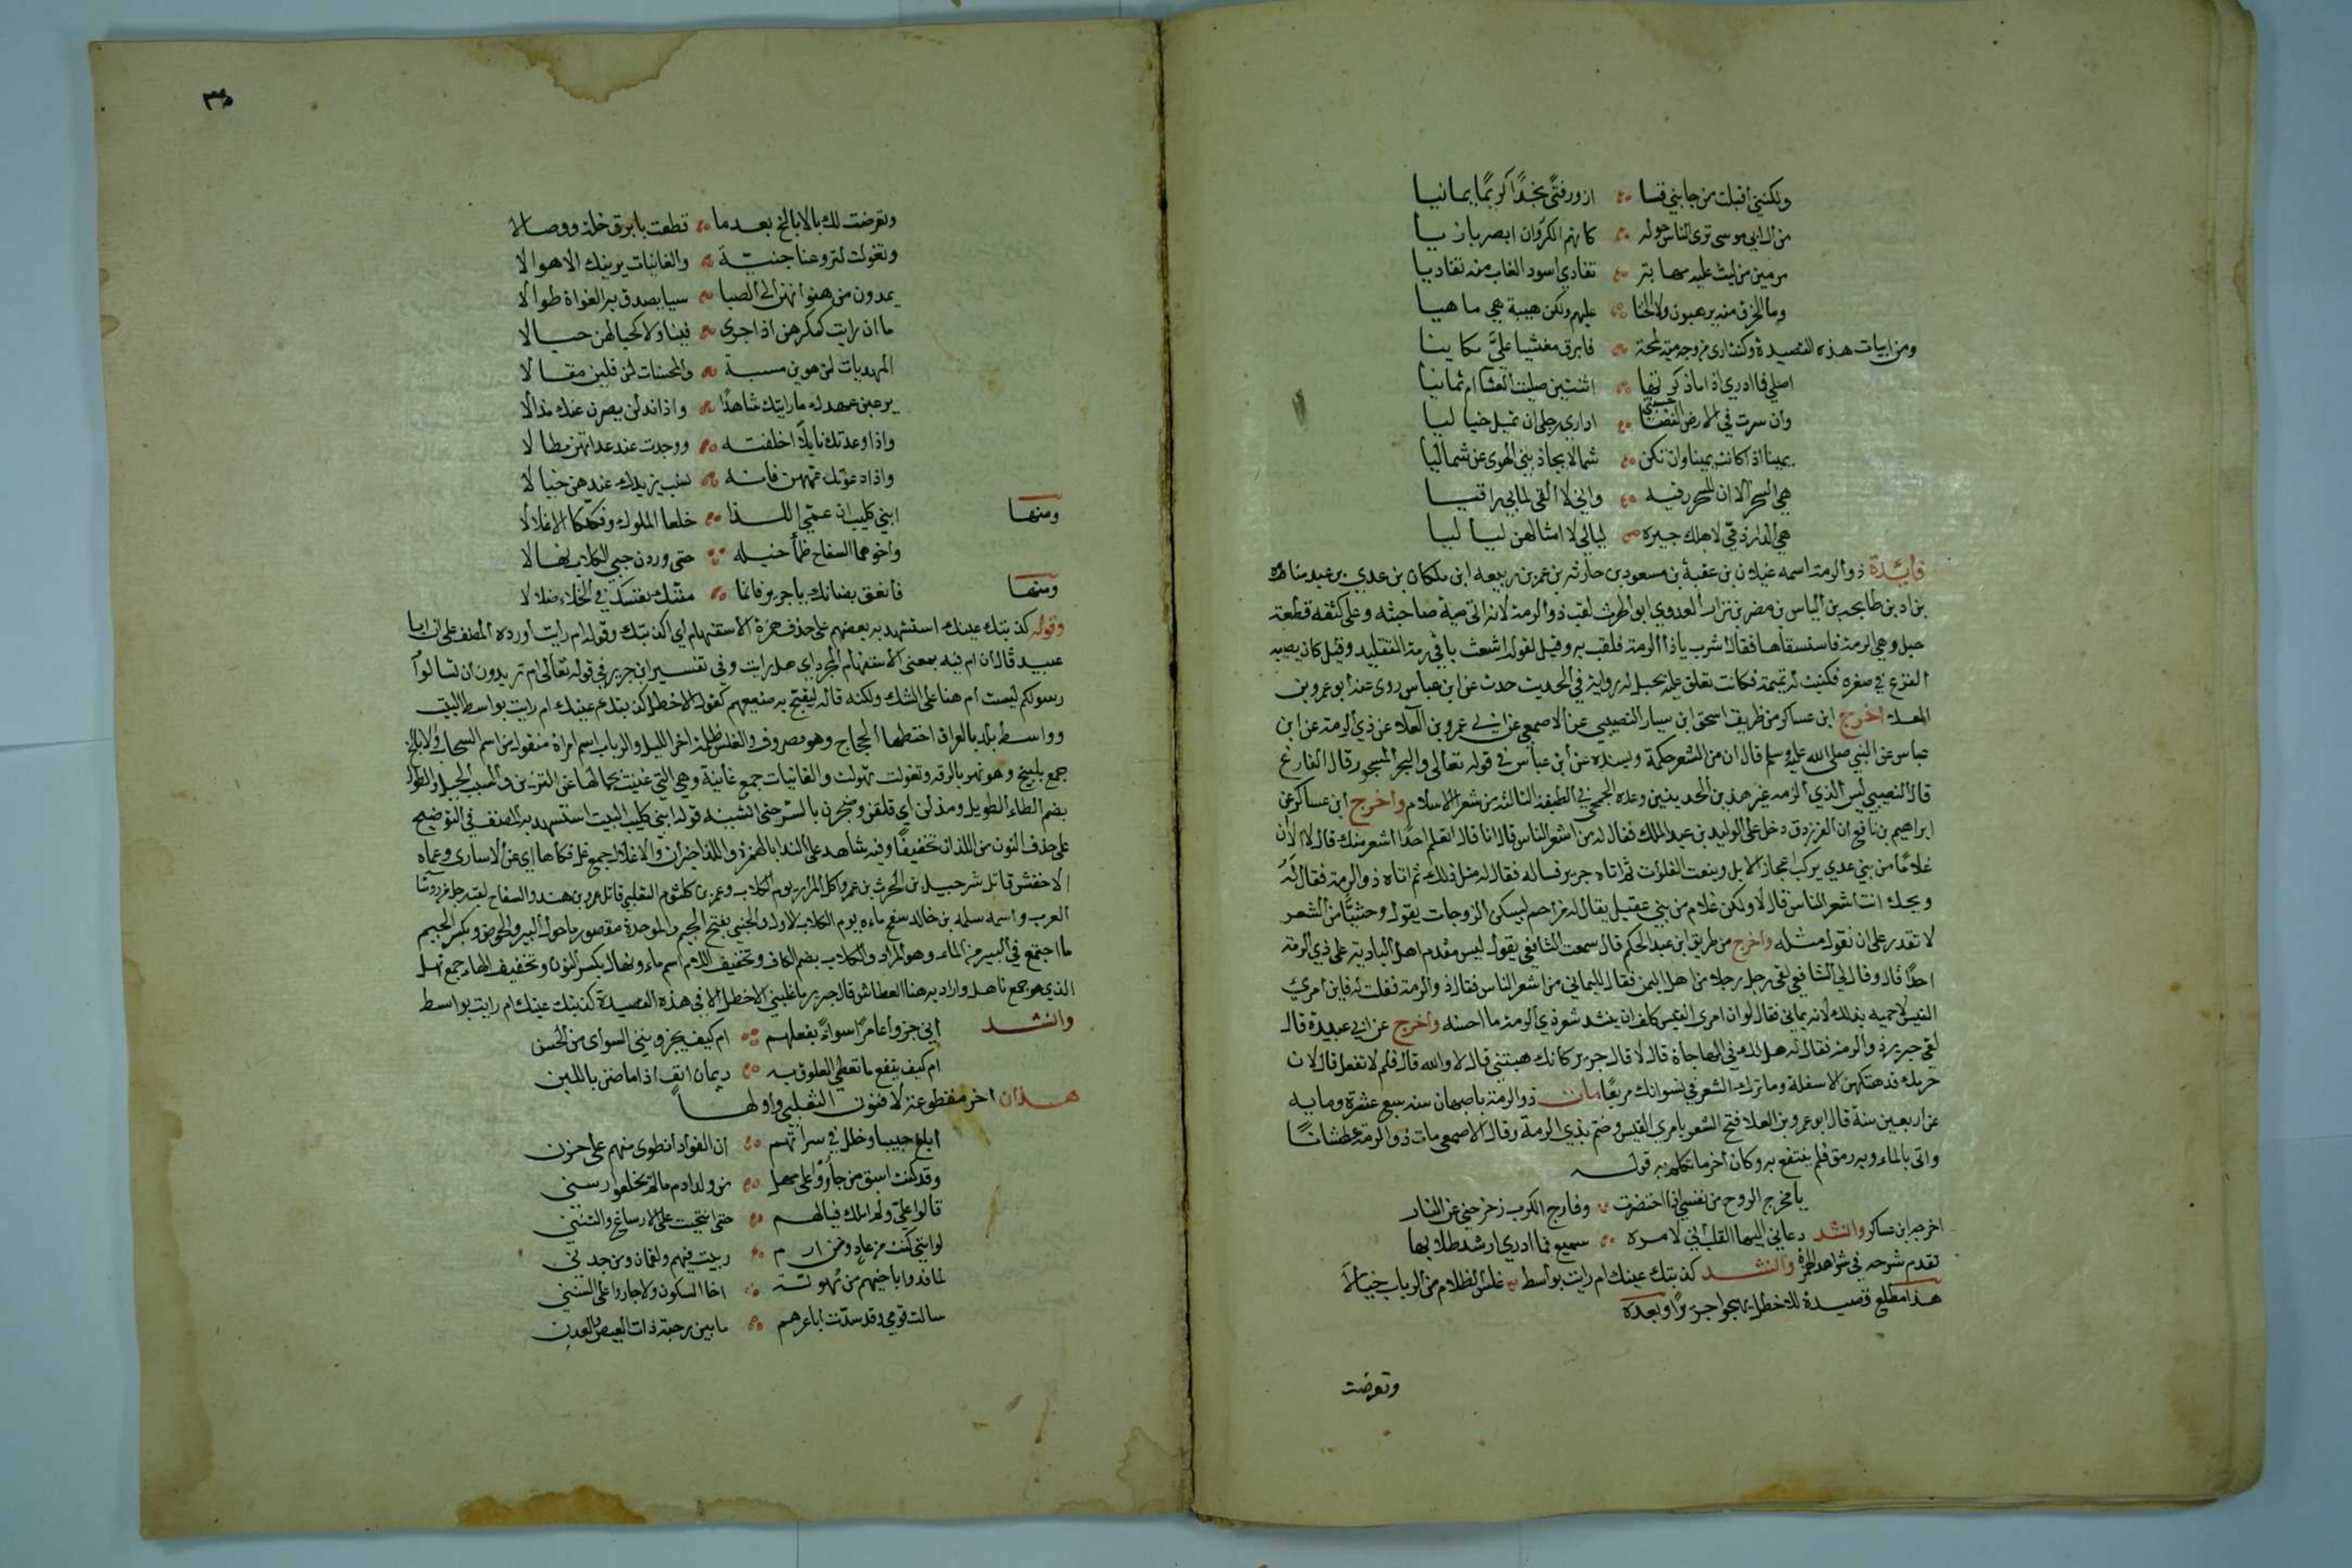 ولكنني اقبلت من جانبي قسا ازور فتى نجدا كريما يمانيا
من ال ابي موسى ترى الناس حوله كانهم الكروان ابصر بازيا
مرمين من ليث عليه مهابة تفادي اسود الغاب منه تفاديا
وما الخرق منه يرهبون ولا الخنا عليهم ولكن هيبة هي ماهيا
ومن ابيات هذه القصيدة وكنت ارى من وجه مية لمحة فابرق مغشيا علي مكانيا
اصلي فما ادري اذا ما ذكرتها اثنتين صليت العشا ام ثمانيا
وان سرت في الارض الفضا اداري رحلي ان تميل حباليا
يمينا اذا كانت يمينا وان تكن شمالا يجاذبني الهوى عن شماليا
هي السحر الا ان للسحر رقية واني لا القى لما بي راقيا
هي الدار اذ مي لاهلك جيرة ليالي لا امثالهن لياليا
فائدة ذو الرمة اسمه غيلان بن عقبة بن مسعود بن حارثه بن عمر بن ربيعه ابن ملكان بن عدي بن عبد مناه
بن اد بن طابخه بن الياس بن مضر بن نزار العدوي ابو الحرث لقب ذو الرمة لانه اتى مية صاحبته وعلى كتفه قطعة
حبل وهي الرمة فاستسقاها فقالت اشرب ياذا الرمة فلقب به وقيل لقوله اشعث باقي رمة التقليد وقيل كان يصيبه
الفزع في صغره فكتبت له تميمة فكانت تعلق عليه بحبل له رواية في الحديث حدث عن ابن عباس روى عنه ابو عمرو بن
العلاء اخرج ابن عساكر من طريق اسحق ابن سيار النصيبي عن الاصمعي عن ابي عمرو بن العلاء عن ذي الرمة عن ابن
عباس عن النبي صلى الله عليه وسلم قال ان من الشعر حكمة وبسنده عن ابن عباس في قوله تعالى والبحر المسجور قال الفارغ
قال النصيبي ليس لذي الرمه غير هذين الحديثين وعده الجمحي في الطبقة الثالثه من شعر الاسلام واخرج ابن عساكر عن
ابراهيم بن نافع ان الفرزدق دخل على الوليد بن عبد الملك فقال له من اشعر الناس قال انا قال اتعلم احدا اشعر منك قال لا الا ان
غلاما من بني عدي يركب اعجاز الابل وينعت الفلوات ثم اتاه جرير فساله فقال له مثل ذلك ثم اتاه ذو الرمة فقال له
ويحك انت اشعر الناس قال لا ولكن غلام من بني عقيل يقال له مزاحم ليسكن الروحات يقول وحشيا من الشعر
لا نقدر على ان نقول مثله واخرج من طريق ابن عبد الحكم قال سمعت الشافعي يقول ليس مقدم اهل البادية على ذي الرمة
احدا قال وقال لي الشافعي لقي رجل رجلا من اهل اليمن فقال لليماني من اشعر الناس فقال ذو الرمة فقلت له فاين امرئ
القيس لاحميه بذلك لانه يماني فقال لو ان امرئ القيس كلف ان ينشد شعر ذي الرمة ما احسنه واخرج عن ابي عبيدة قال
لقي جرير ذو الرمة فقال له هل لك في المهاجاة قال لا قال جرير كانك هبتني قال لا والله قال فلم لا تفعل قال لان
حرمك قد هتكهن الاسفلة وما ترك الشعر في نسوانك مربعا مات ذو الرمة باصبهان سنه سبع عشرة وماية
عن اربعين سنة قال ابو عمرو بن العلا فتح الشعر بامرئ القيس وختم بذي الرمة وقال الاصمعي مات ذو الرمة عطشانا
واتى بالماء وبه رمق فلم ينتفع به وكان اخر ما تكلم به قوله
يا مخرج الروح من نفسي اذا احتضرت وفارج الكرب زحزحني عن النار
اخرجه ابن عساكر وانشد دعاني اليها القلب اني لامره سميع فما ادري ارشد طلابها
تقدم شرحه في شواهد الهمزة وانشد كذبتك عينك ام رايت بواسط غلس الظلام من الرباب خيالا
هذا مطلع قصيدة للاخطل يهجوا جريرا وبعده
وتعرضت
٣٥
وتعرضت لك بالابالخ بعدما قطعت بابرق خلة ووصالا
وتغولت لتروعنا جنية والغانيات يرينك الاهوالا
يمددن من هفواتهن الى الصبا سببا يصدن به الغواة طوالا
ما ان رايت كمكرهن اذا جرى فينا ولا كحبالهن حبالا
المهديات لمن هوين مسبة والمحسنات لمن قلين مقالا
يرعين عهدك ما راينك شاهدا واذا مذلن يصرن عنك مذالا
واذا وعدنك نايلا اخلفنه ووجدت عند عداتهن مطالا
واذا دعونك عمهن فانه نسب يزيدك عندهن خبالا
ومنها ابني كليب ان عمي اللذا خلعا الملوك وفككا الاغلالا
واخوهما السفاح ظمأ خيله حتى وردن جبي الكلاب نهالا
ومنها فانعق بضانك يا جرير فانما منتك نفسك في الخلاء ضلالا
وقوله كذبتك عينك استشهد به بعضهم على حذف همزة الاستفهام اي اكذبتك وقوله ام رايت اورده المصنف على ان ابا
عبيد قال ان ام فيه بمعنى الاستفهام المجرد اي هل رايت وفي تفسير ابن جرير في قوله تعالى ام تريدون ان تسالوا
رسولكم ليست ام هنا على الشك ولكنه قاله ليقبح به صنيعهم كقول الاخطل كذبتك عينك ام رايت بواسط البيت
وواسط بلد بالعراق اختطها الحجاج وهو مصروف والغلس ظلمة اخر الليل والرباب اسم امراة منقول من اسم السحاب والابالخ
جمع بليخ وهو نهر بالرقه وتغولت تهولت والغانيات جمع غانية وهي التي غنيت بجمالها عن التزين والسبب الحبل والطوال
بضم الطاء الطويل ومذلن اي قلقن وضجرن بالسر حتى افشينه قوله ابني كليب البيت استشهد به المصنف في التوضيح
على حذف النون من اللذان تخفيفا وفيه شاهد على الندا بالهمزة واللذا خبر ان والاغلال جمع غل فكاها اي عن الاسارى وعماه
الاخفش قاتل شرحبيل بن الحرث بن عمرو اكل المرار يوم الكلاب وعمر بن كلثوم التغلبي قاتل عمرو بن هند والسفاح لقب رجل من روسا
العرب واسمه سلمه بن خالد سفح ماءه يوم الكلاب الاول والجبي بفتح الجيم والموحدة مقصور ما حول البير والحوض وبكسر الجيم
ما اجتمع في البير من الماء وهو المراد والكلاب بضم الكاف وتخفيف اللام اسم ماء ونهال بكسر النون وتخفيف الهاء جمع نهل
الذي هو جمع ناهل واراد به هنا العطاش قال جرير ما غلبني الاخطل الا في هذه القصيدة كذبتك عينك ام رايت بواسط
وانشد انى جزوا عامرا سواى بفعلهم ام كيف يجزونني السواى من الحسن
ام كيف ينفع ما تعطي العلوق به ريمان انف اذا ما ضن باللبن
هذان اخر مقطوعة لافنون التغلبي واولها
ابلغ حبيبا وخلل في سراتهم ان الفواد انطوى منهم على حزن
وقد كنت اسبق من جاروا على مهل من ولد ادم ما لم يخلعوا رسني
قالوا علي ولم املك فيالهم حتى انتحيت على الارساغ والثنن
لو انني كنت من عاد ومن ارم ربيت فيهم ولقمان ومن جدن
لما فدوا باخيهم من مهولة اخا السكون ولا جاروا على السنن
سالت قومي وقد سدت اباعرهم ما بين رحبة ذات العيص والعدن